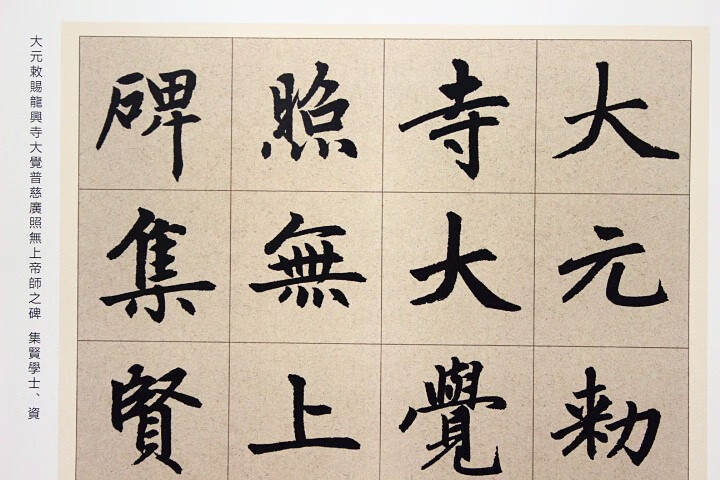 大元勑
寺大覺
照無上
碑集賢
大元敕賜龍興寺大覺普慈廣照無上帝師之碑 集賢學士、資